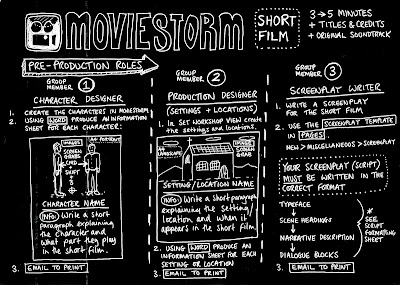 MOVIESTORM
SHORT
FILM
3→5 MINUTES
+ TITLES & CREDITS
+ ORIGINAL SOUNDTRACK
PRE-PRODUCTION ROLES
GROUP
MEMBER 1
CHARACTER DESIGNER
1. CREATE THE CHARACTERS IN MOVIESTORM.
2. USING WORD PRODUCE AN INFORMATION
SHEET FOR EACH CHARACTER:
A4 PORTRAIT
IMAGES
SCREEN
GRAB
CMD
SHIFT
4
CHARACTER NAME
INFO: Write a short
paragraph explaining
the character and
what part they play
in the short film.
3. EMAIL TO PRINT
GROUP
MEMBER 2
PRODUCTION DESIGNER
(SETTINGS + LOCATIONS)
1. In SET WORKSHOP VIEW create
the settings and locations.
A4
LANDSCAPE
SETTING/LOCATION NAME
INFO: Write a short
paragraph explaining
the setting/
location and when it
appears in the short film.
2. USING WORD PRODUCE AN
INFORMATION SHEET FOR EACH
SETTING OR LOCATION
3. EMAIL TO PRINT
GROUP
MEMBER 3
SCREENPLAY WRITER
1. WRITE A SCREENPLAY
FOR THE SHORT FILM.
2. USE THE SCREENPLAY TEMPLATE
IN PAGES
NEW > MISCELLANEOUS > SCREENPLAY
YOUR SCREENPLAY (SCRIPT)
MUST BE WRITTEN IN THE
CORRECT FORMAT
TYPEFACE
SCENE HEADINGS
NARRATIVE DESCRIPTION
DIALOGUE BLOCKS
* SEE
SCRIPT
FORMATTING
SHEET
3. EMAIL TO PRINT